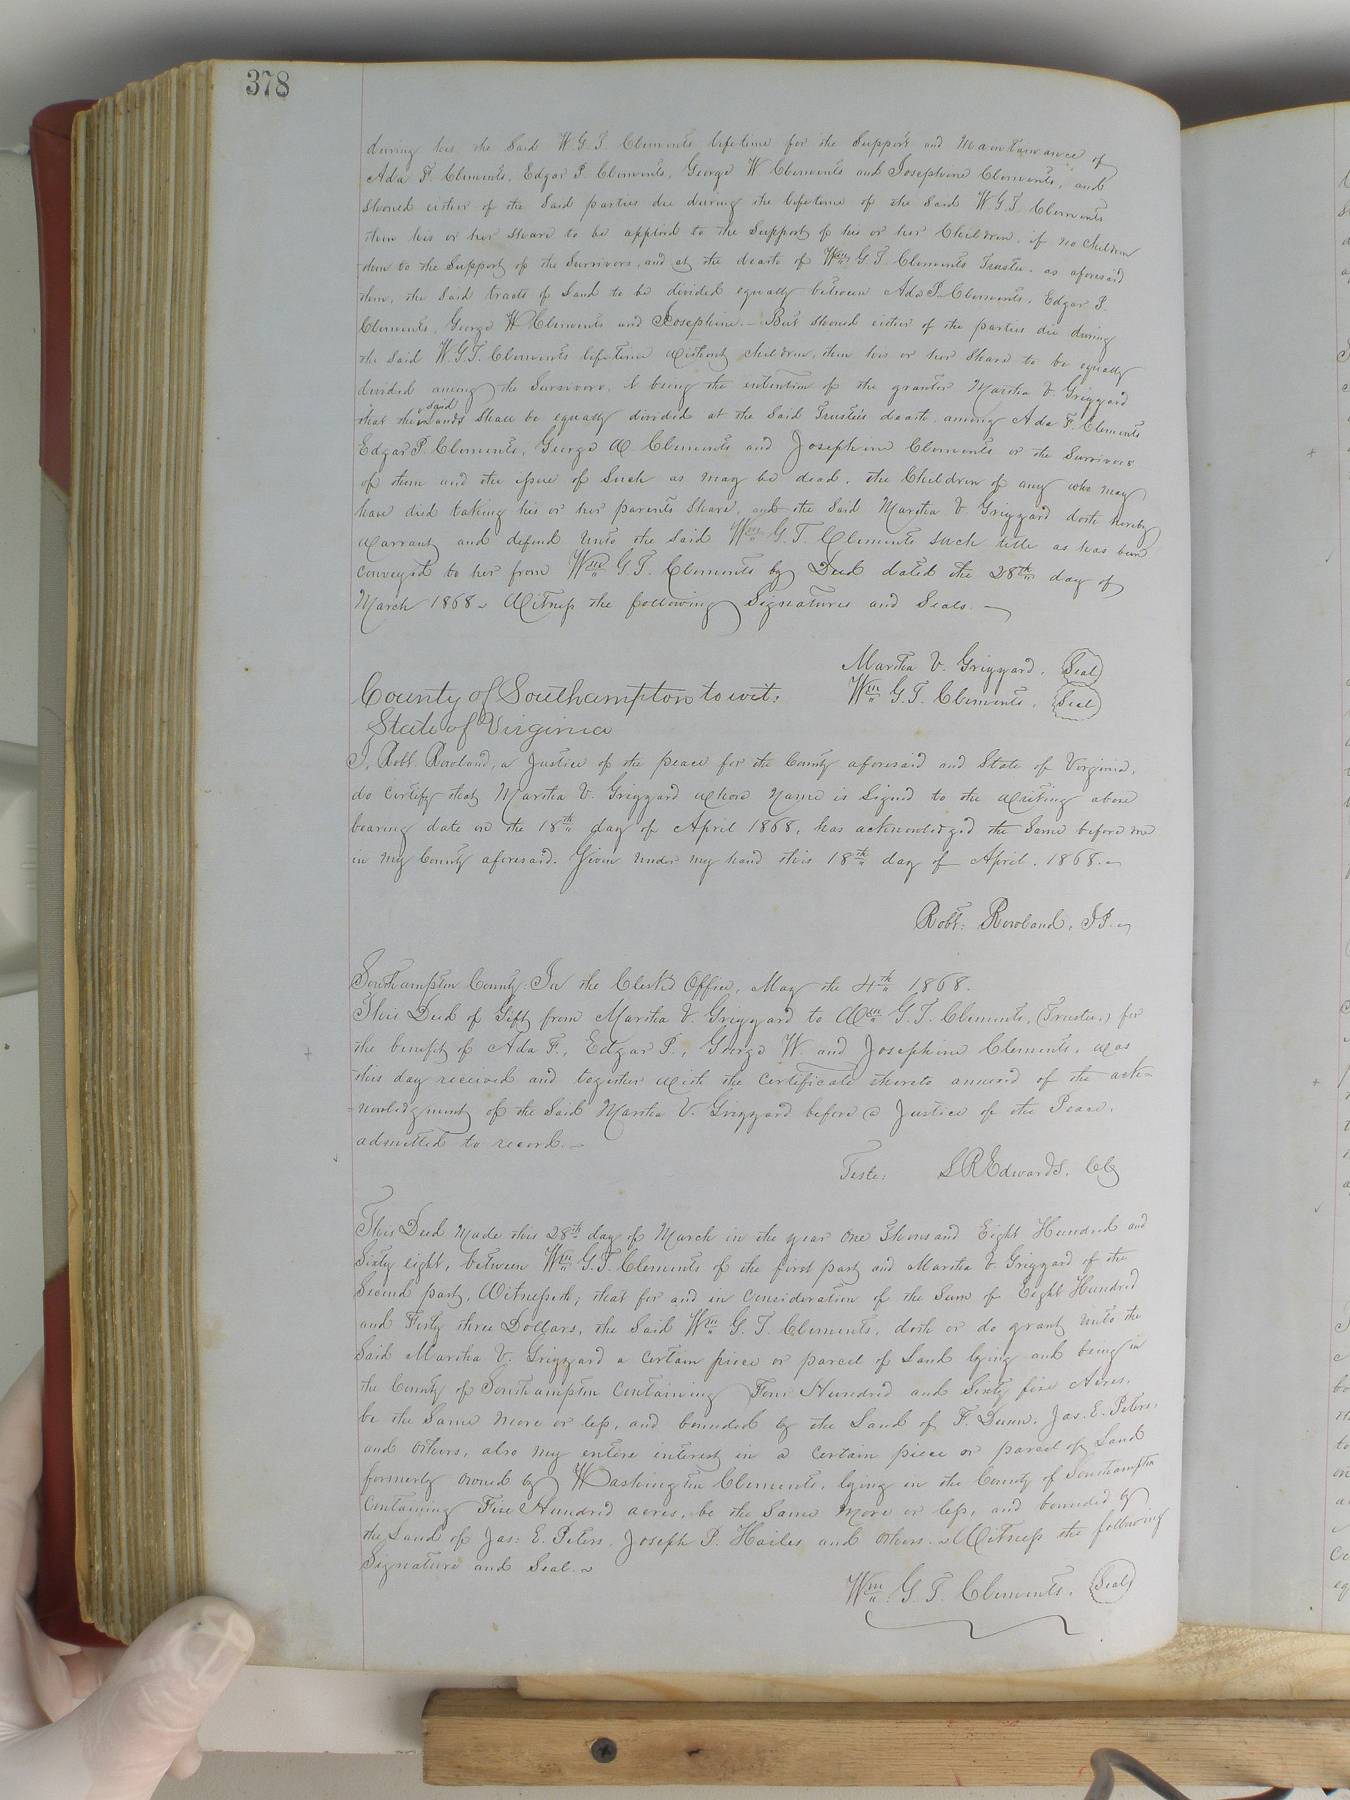 378
during his, the Said W. G. T. Clements lifetime for the Support and Maintainance of
Ada F. Clements, Edgar P. Clements, George W Clements and Josephine Clements, and
Should either of the Said parties die during the lifetime of the Said W. G. T. Clements
then his or her Share to be applied to the Support of his or her Children, if no Children
then to the Support of the Survivors, and at the death of Wm. G. T. Clements Trustee, as aforesaid
then, the Said tracts of Land to be divided equally between Ada F. Clements, Edgar P.
Clements, George W Clements and Josephine. — But Should either of the parties die during
the Said W. G. T. Clements lifetime without children, then his or her Share to be equally
divided among the Survivors. It being the intention of the grantor Martha V. Griggard
that the said Lands Shall be equally divided at the Said Trustees death, among Ada F. Clements
Edgar P. Clements, George W Clements and Josephine Clements or the Survivors
of them and the issue of Such as may be dead, the Children of any who may
have died taking his or her parents Share, and the Said Martha V. Griggard doth hereby
Warrant and defend Unto the Said Wm. G. T. Clements Such title as has been
Conveyed to her from Wm. G. T. Clements by Deed dated the 28th day of
March 1868. Witness the following Signatures and Seals. —
Martha V. Griggard. (Seal)
Wm. G. T. Clements. (Seal)
County of Southampton to wit:
State of Virginia
I, Robt. Rowland, a Justice of the peace for the County aforesaid and State of Virginia,
do Certify that Martha V. Griggard whose Name is Signed to the Writing above
bearing date on the 18th day of April 1868, has acknowledged the Same before me
in my County aforesaid. Given under my hand this 18th day of April. 1868.
Robt. Rowland, J.P.
Southampton County: In the Clerk's Office, May the 4th 1868.
This Deed of Gift from Martha V. Griggard to Wm. G. T. Clements, (Trustee,) for
the benefit of Ada F., Edgar P., George W. and Josephine Clements, was
this day received and together with the Certificate thereto annexed of the ack=
=nowledgment of the Said Martha V. Griggard before a Justice of the Peace,
admitted to record. —
Teste: L R Edwards, Clk
This Deed Made this 28th day of March in the year One Thousand Eight Hundred and
Sixty eight, between Wm. G. T. Clements of the first part and Martha V. Griggard of the
Second part, Witnesseth; that for and in Consideration of the Sum of Eight Hundred
and Forty three Dollars, the Said Wm. G. T. Clements, doth or do grant Unto the
Said Martha V. Griggard a Certain piece or parcel of Land lying and being in
the County of Southampton Containing Four Hundred and Sixty five Acres,
be the Same More or less, and bounded by the Land of F. Dunn, Jas. E. Peters,
and others, also my entire interest in a Certain piece or parcel of Land
formerly owned by Washington Clements, lying in the County of Southampton
Containing Five Hundred acres, be the Same More or less, and bounded by
the Land of Jas: E. Peters, Joseph P. Hailes and others. Witness the following
Signature and Seal.
Wm. G. T. Clements. (Seal)